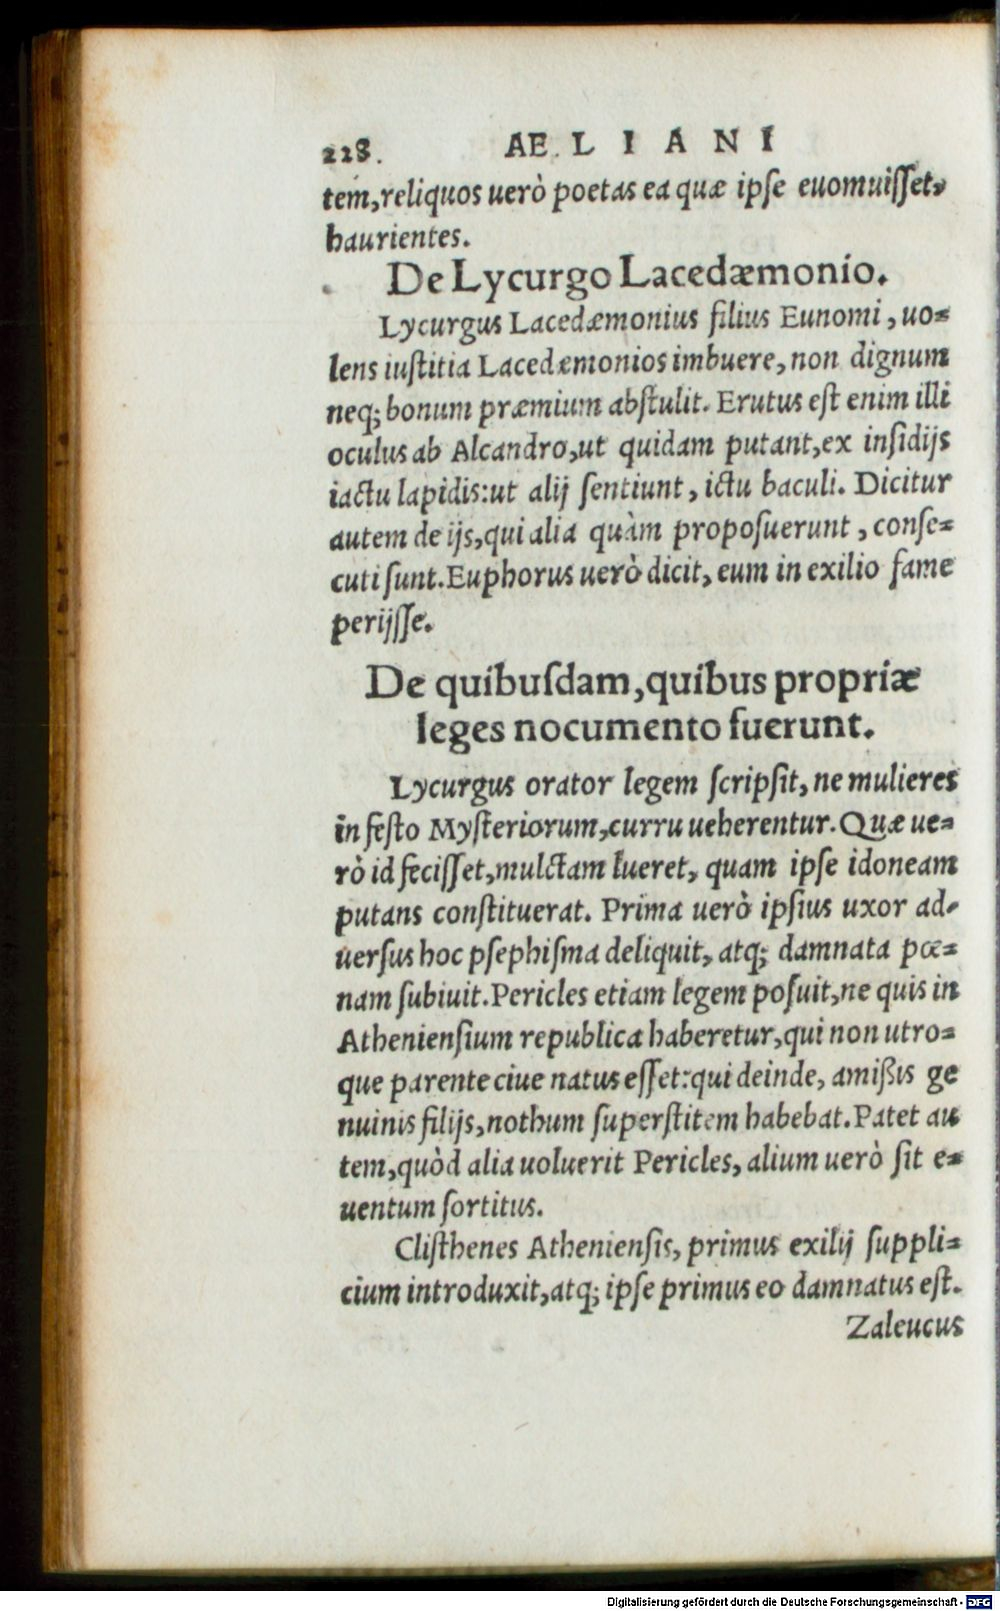 228. AE L I A N I
tem, reliquos uerò poetas ea quæ ipse euomuisset,
haurientes.
De Lycurgo Lacedæmonio.
Lycurgus Lacedæmonius filius Eunomi, uo=
lens iustitia Lacedæmonios imbuere, non dignum
neq; bonum præmium abstulit. Erutus est enim illi
oculus ab Alcandro, ut quidam putant, ex insidijs
iactu lapidis: ut alij sentiunt, ictu baculi. Dicitur
autem de ijs, qui alia quàm proposuerunt, conse=
cuti sunt. Euphorus uerò dicit, eum in exilio fame
perijsse.
De quibusdam, quibus propriæ
leges nocumento fuerunt.
Lycurgus orator legem scripsit, ne mulieres
in festo Mysteriorum, curru ueherentur. Quæ ue=
rò id fecisset, mulctam lueret, quam ipse idoneam
putans constituerat. Prima uerò ipsius uxor ad-
uersus hoc psephisma deliquit, atq; damnata pœ=
nam subiuit. Pericles etiam legem posuit, ne quis in
Atheniensium republica haberetur, qui non utro=
que parente ciue natus esset: qui deinde, amißis ge
nuinis filijs, nothum superstitem habebat. Patet au
tem, quòd alia uoluerit Pericles, alium uerò sit e=
uentum sortitus.
Clisthenes Atheniensis, primus exilij suppli=
cium introduxit, atq; ipse primus eo damnatus est.
Zaleucus
Digitalisierung gefördert durch die Deutsche Forschungsgemeinschaft - DFG